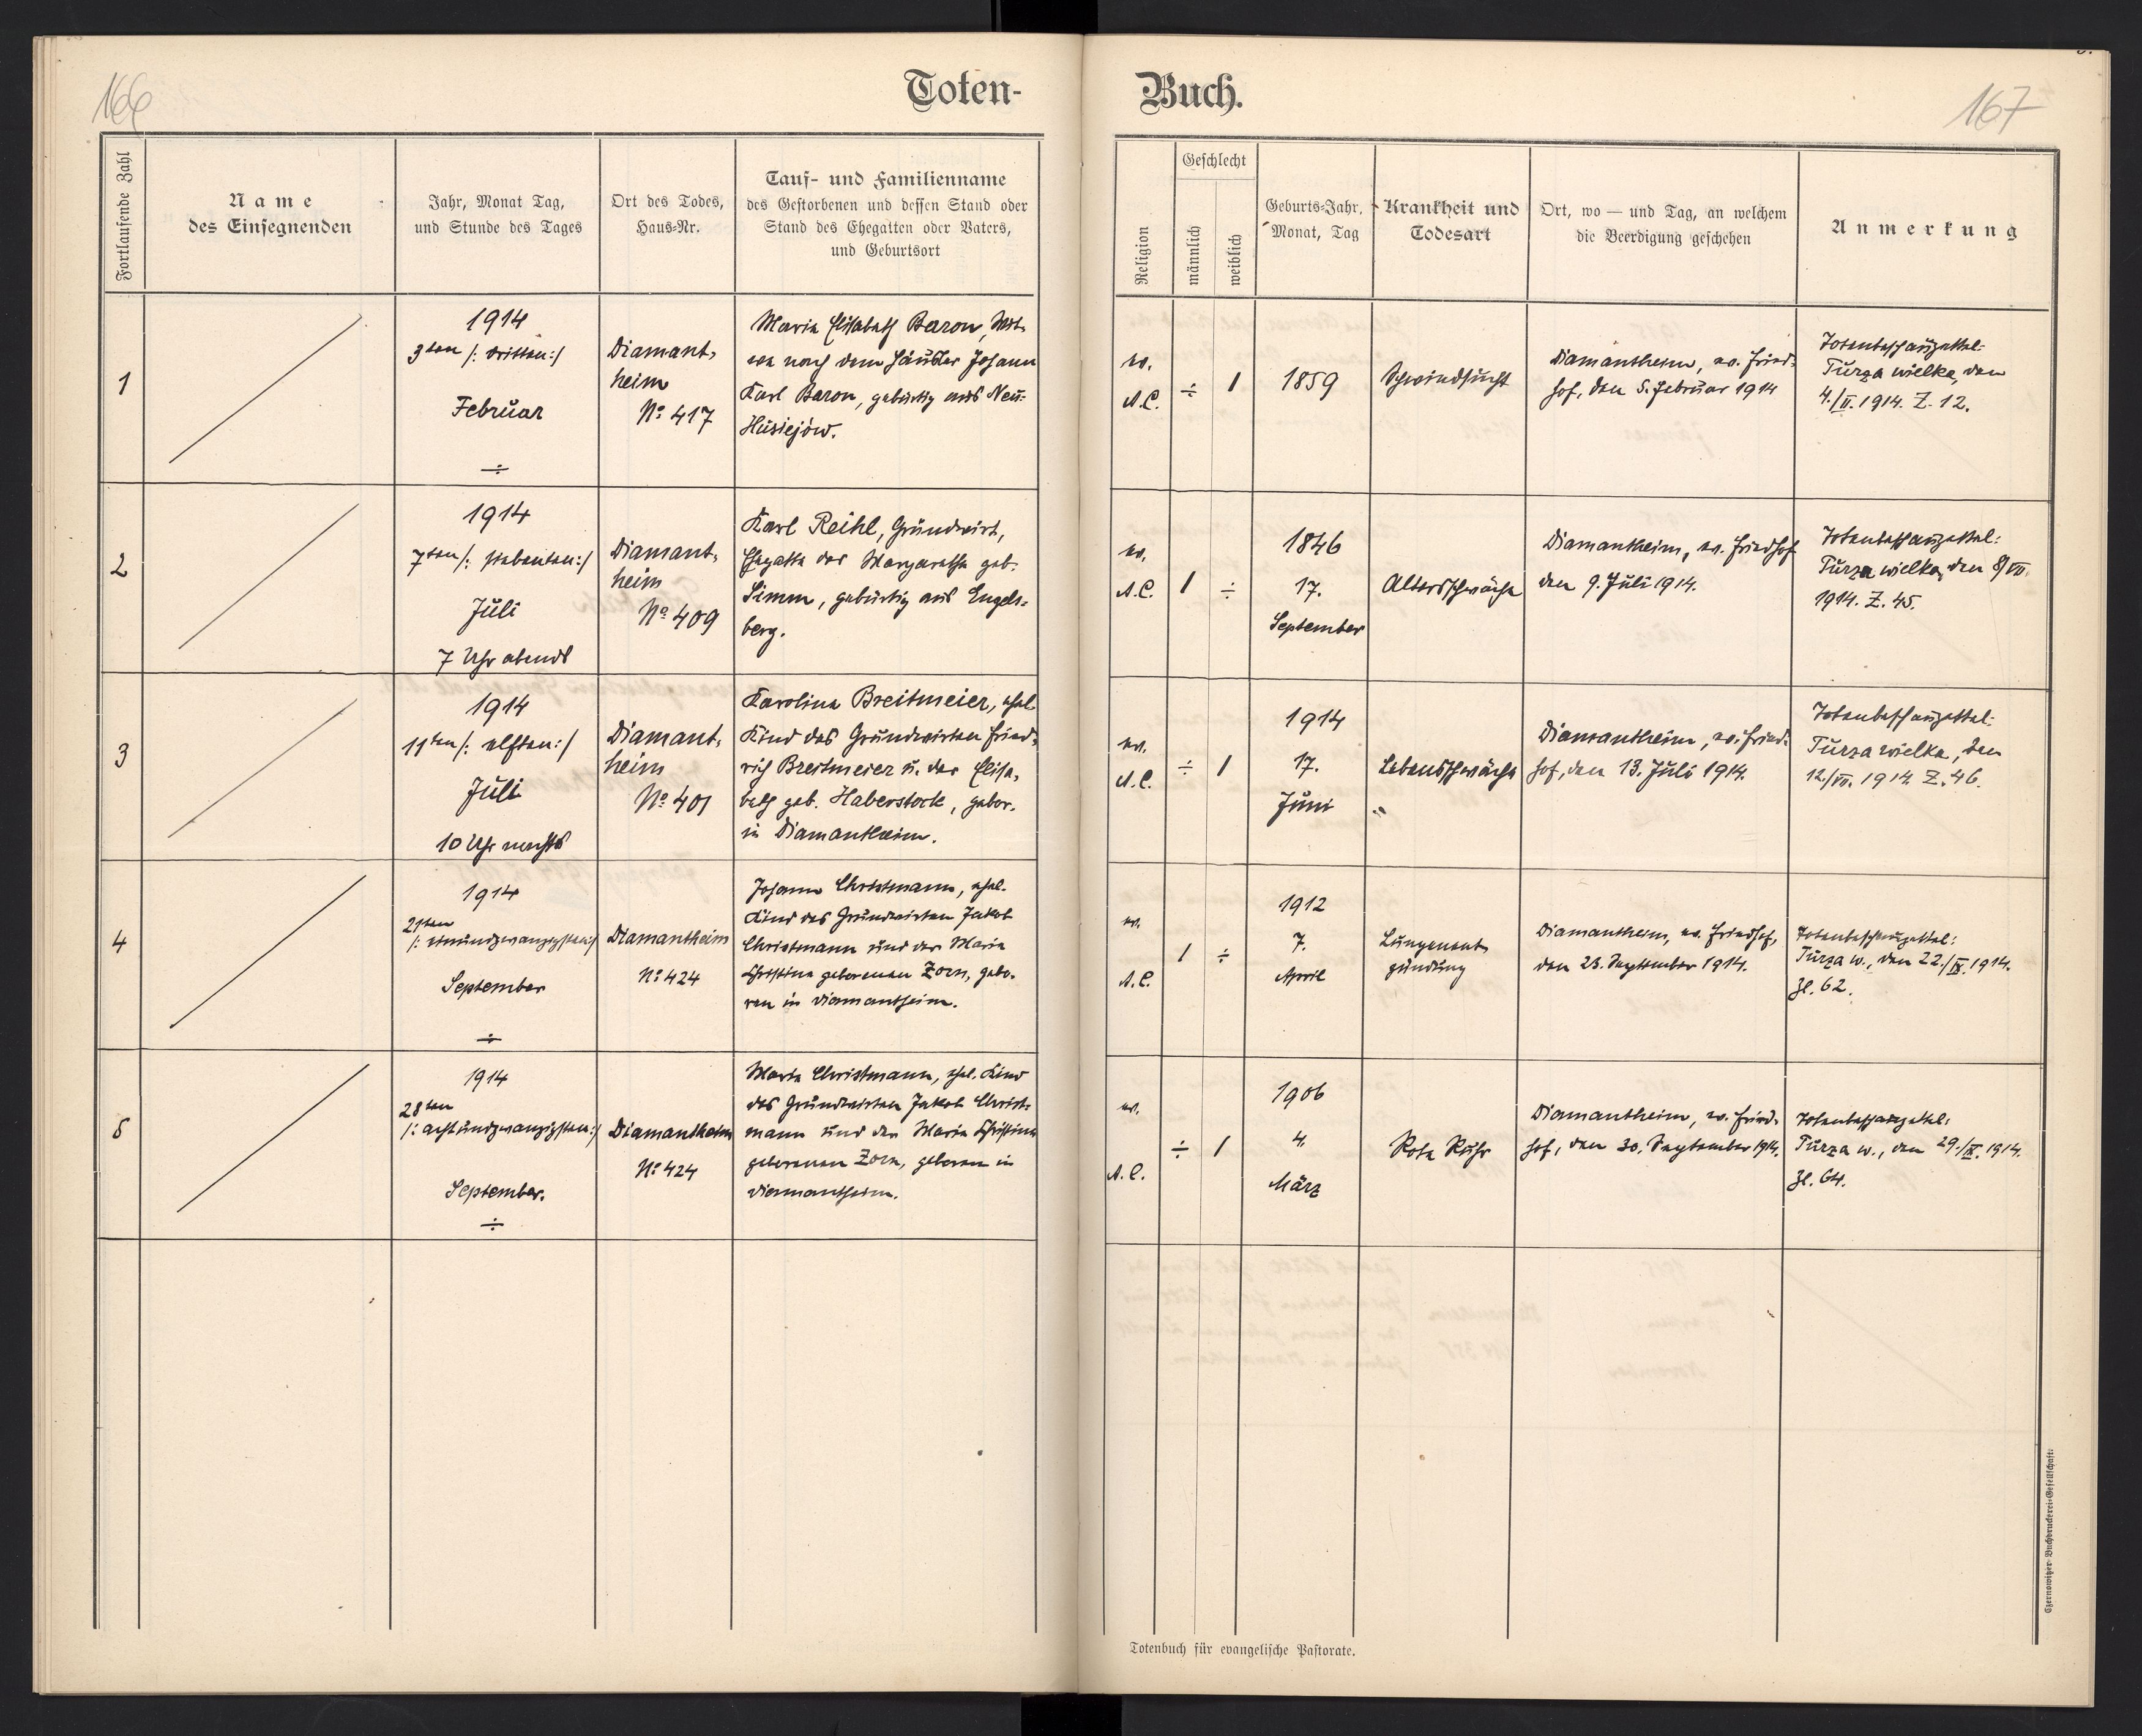 166
Toten-
Buch.
167
Fortlaufende Zahl
Name
des Einsegnenden
Jahr, Monat Tag,
und Stunde des Tages
Ort des Todes,
Haus-Nr.
Tauf- und Familienname
des Gestorbenen und dessen Stand oder
Stand des Ehegatten oder Vaters,
und Geburtsort
Religion
Geschlecht
männlich
weiblich
Geburts-Jahr,
Monat, Tag
Krankheit und
Todesart
Ort, wo — und Tag, an welchem
die Beerdigung geschehen
Anmerkung
1
1914
3ten /: dritten:/
Februar
÷
Diamant-
heim
No 417
Maria Elisabeth Baron, Wit-
we nach dem Häusler Johann
Karl Baron, gebürtig aus Neu-
Husiejów.
ev.
A.C.
÷
1
1859
Schwindsucht
Diamantheim, ev. Fried-
hof, den 5. Februar 1914
Totenbeschauzettel:
Turza wielka, den
4./II. 1914. Z. 12.
2
1914
7ten /: siebenten:/
Juli
7 Uhr abends
Diamant-
heim
No 409
Karl Reihl, Grundwirt,
Ehegatte der Margaretha geb.
Simm, gebürtig aus Engels-
berg.
ev.
A.C.
1
÷
1846
17.
September
Altersschwäche
Diamantheim, ev. Friedhof
den 9. Juli 1914.
Totenbeschauzettel:
Turza wielka, den 8/VII.
1914. Z. 45.
3
1914
11ten /: elften:/
Juli
10 Uhr nachts
Diamant-
heim
No 401
Karolina Breitmeier, ehel.
Kind des Grundwirten Fried-
rich Breitmeier u. der Elisa-
beth geb. Haberstock, gebor.
in Diamantheim.
ev.
A.C.
÷
1
1914
17.
Juni
Lebensschwäche
Diamantheim, ev. Fried-
hof, den 13. Juli 1914.
Totenbeschauzettel:
Turza wielka, den
12./VII. 1914. Z. 46.
4
1914
21ten
/: einundzwanzigsten:/
September
÷
Diamantheim
No 424
Johann Christmann, ehel.
Kind des Grundwirten Jakob
Christmann und der Maria
Christina geborenen Zorn, gebo-
ren in Diamantheim.
ev.
A.C.
1
÷
1912
7.
April
Lungenent-
zündung
Diamantheim, ev. Friedhof,
den 23. September 1914.
Totenbeschauzettel:
Turza w., den 22./IX. 1914.
Zl. 62.
5
1914
28ten
/: achtundzwanzigsten:/
September.
÷
Diamantheim
No 424
Maria Christmann, ehel. Kind
des Grundwirten Jakob Christ-
mann und der Maria Christina
geborenen Zorn, geboren in
Diamantheim.
ev.
A.C.
÷
1
1906
4.
März
Rote Ruhr
Diamantheim, ev. Fried-
hof, den 30. September 1914.
Totenbeschauzettel:
Turza w., den 29./IX. 1914.
Zl. 64.
Totenbuch für evangelische Pastorate.
Czernowitzer Buchdruckerei-Gesellschaft.